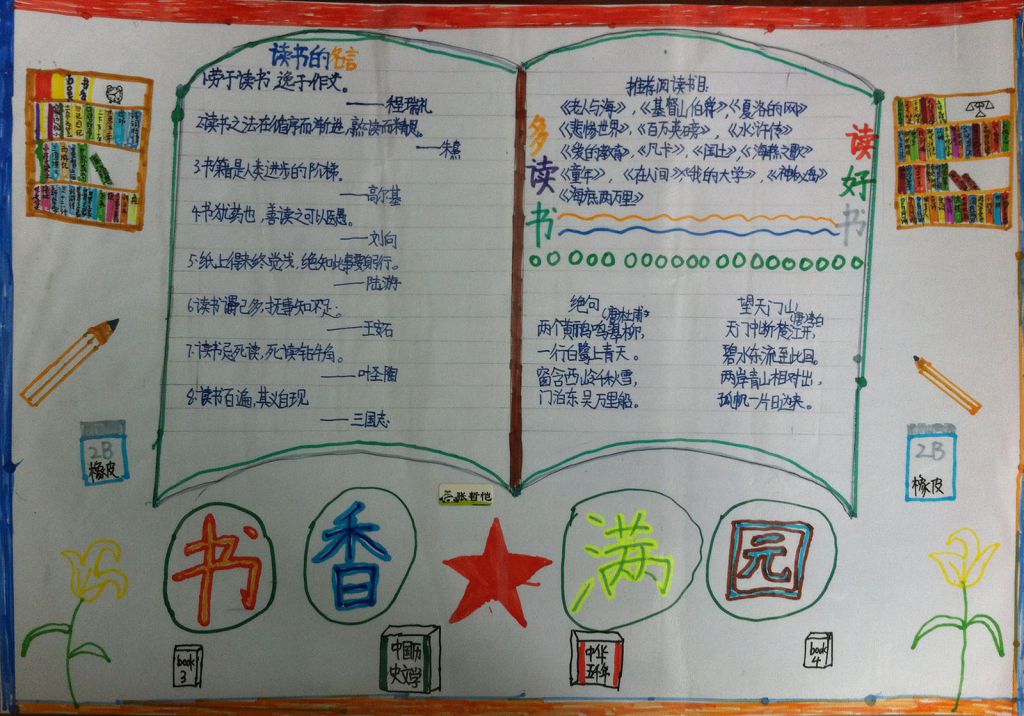 读书的名言
1劳于读书 逸于作文。
——程瑞礼
2.读书之法在循序而渐进,熟读而精思。
——朱熹
3.书籍是人类进步的阶梯。
——高尔基
4.书犹药也,善读之可以医愚。
——刘向
5.纸上得来终觉浅,绝知此事要躬行。
——陆游
6.读书谓已多,抚事知不足。
——王安石
7.读书忌死读,死读钻牛角。
——叶圣陶
8.读书百遍,其义自现
——三国志
多读书
推荐阅读书目
《老人与海》,《基督山伯爵》,《夏洛的网》
《悲惨世界》,《百万英镑》,《水浒传》
《爱的教育》,《凡卡》,《围土》,《海燕之歌》
《童年》,《在人间》,《我的大学》,《神秘岛》
《海底两万里》
读好书
绝句
(唐杜甫)
两个黄鹂鸣翠柳,
一行白鹭上青天。
窗含西岭千秋雪,
门泊东吴万里船。
望天门山
(唐李白
天门中断楚江开,
碧水东流至此回。
两岸青山相对出,
孤帆一片日边来。
2B
橡皮
2B
橡皮
张哲恺
书香满园
book
3
中国历
史文学
中华
五千年
book
4